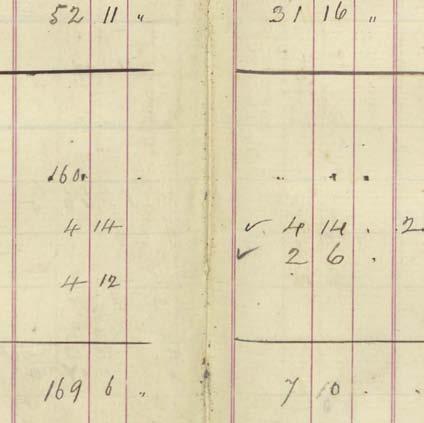 52 11 "
31 16 "
160. .
" . .
4 14
✓ 4 14 . 2
✓ 2 6 .
4 12
169 6 "
7 10 . .